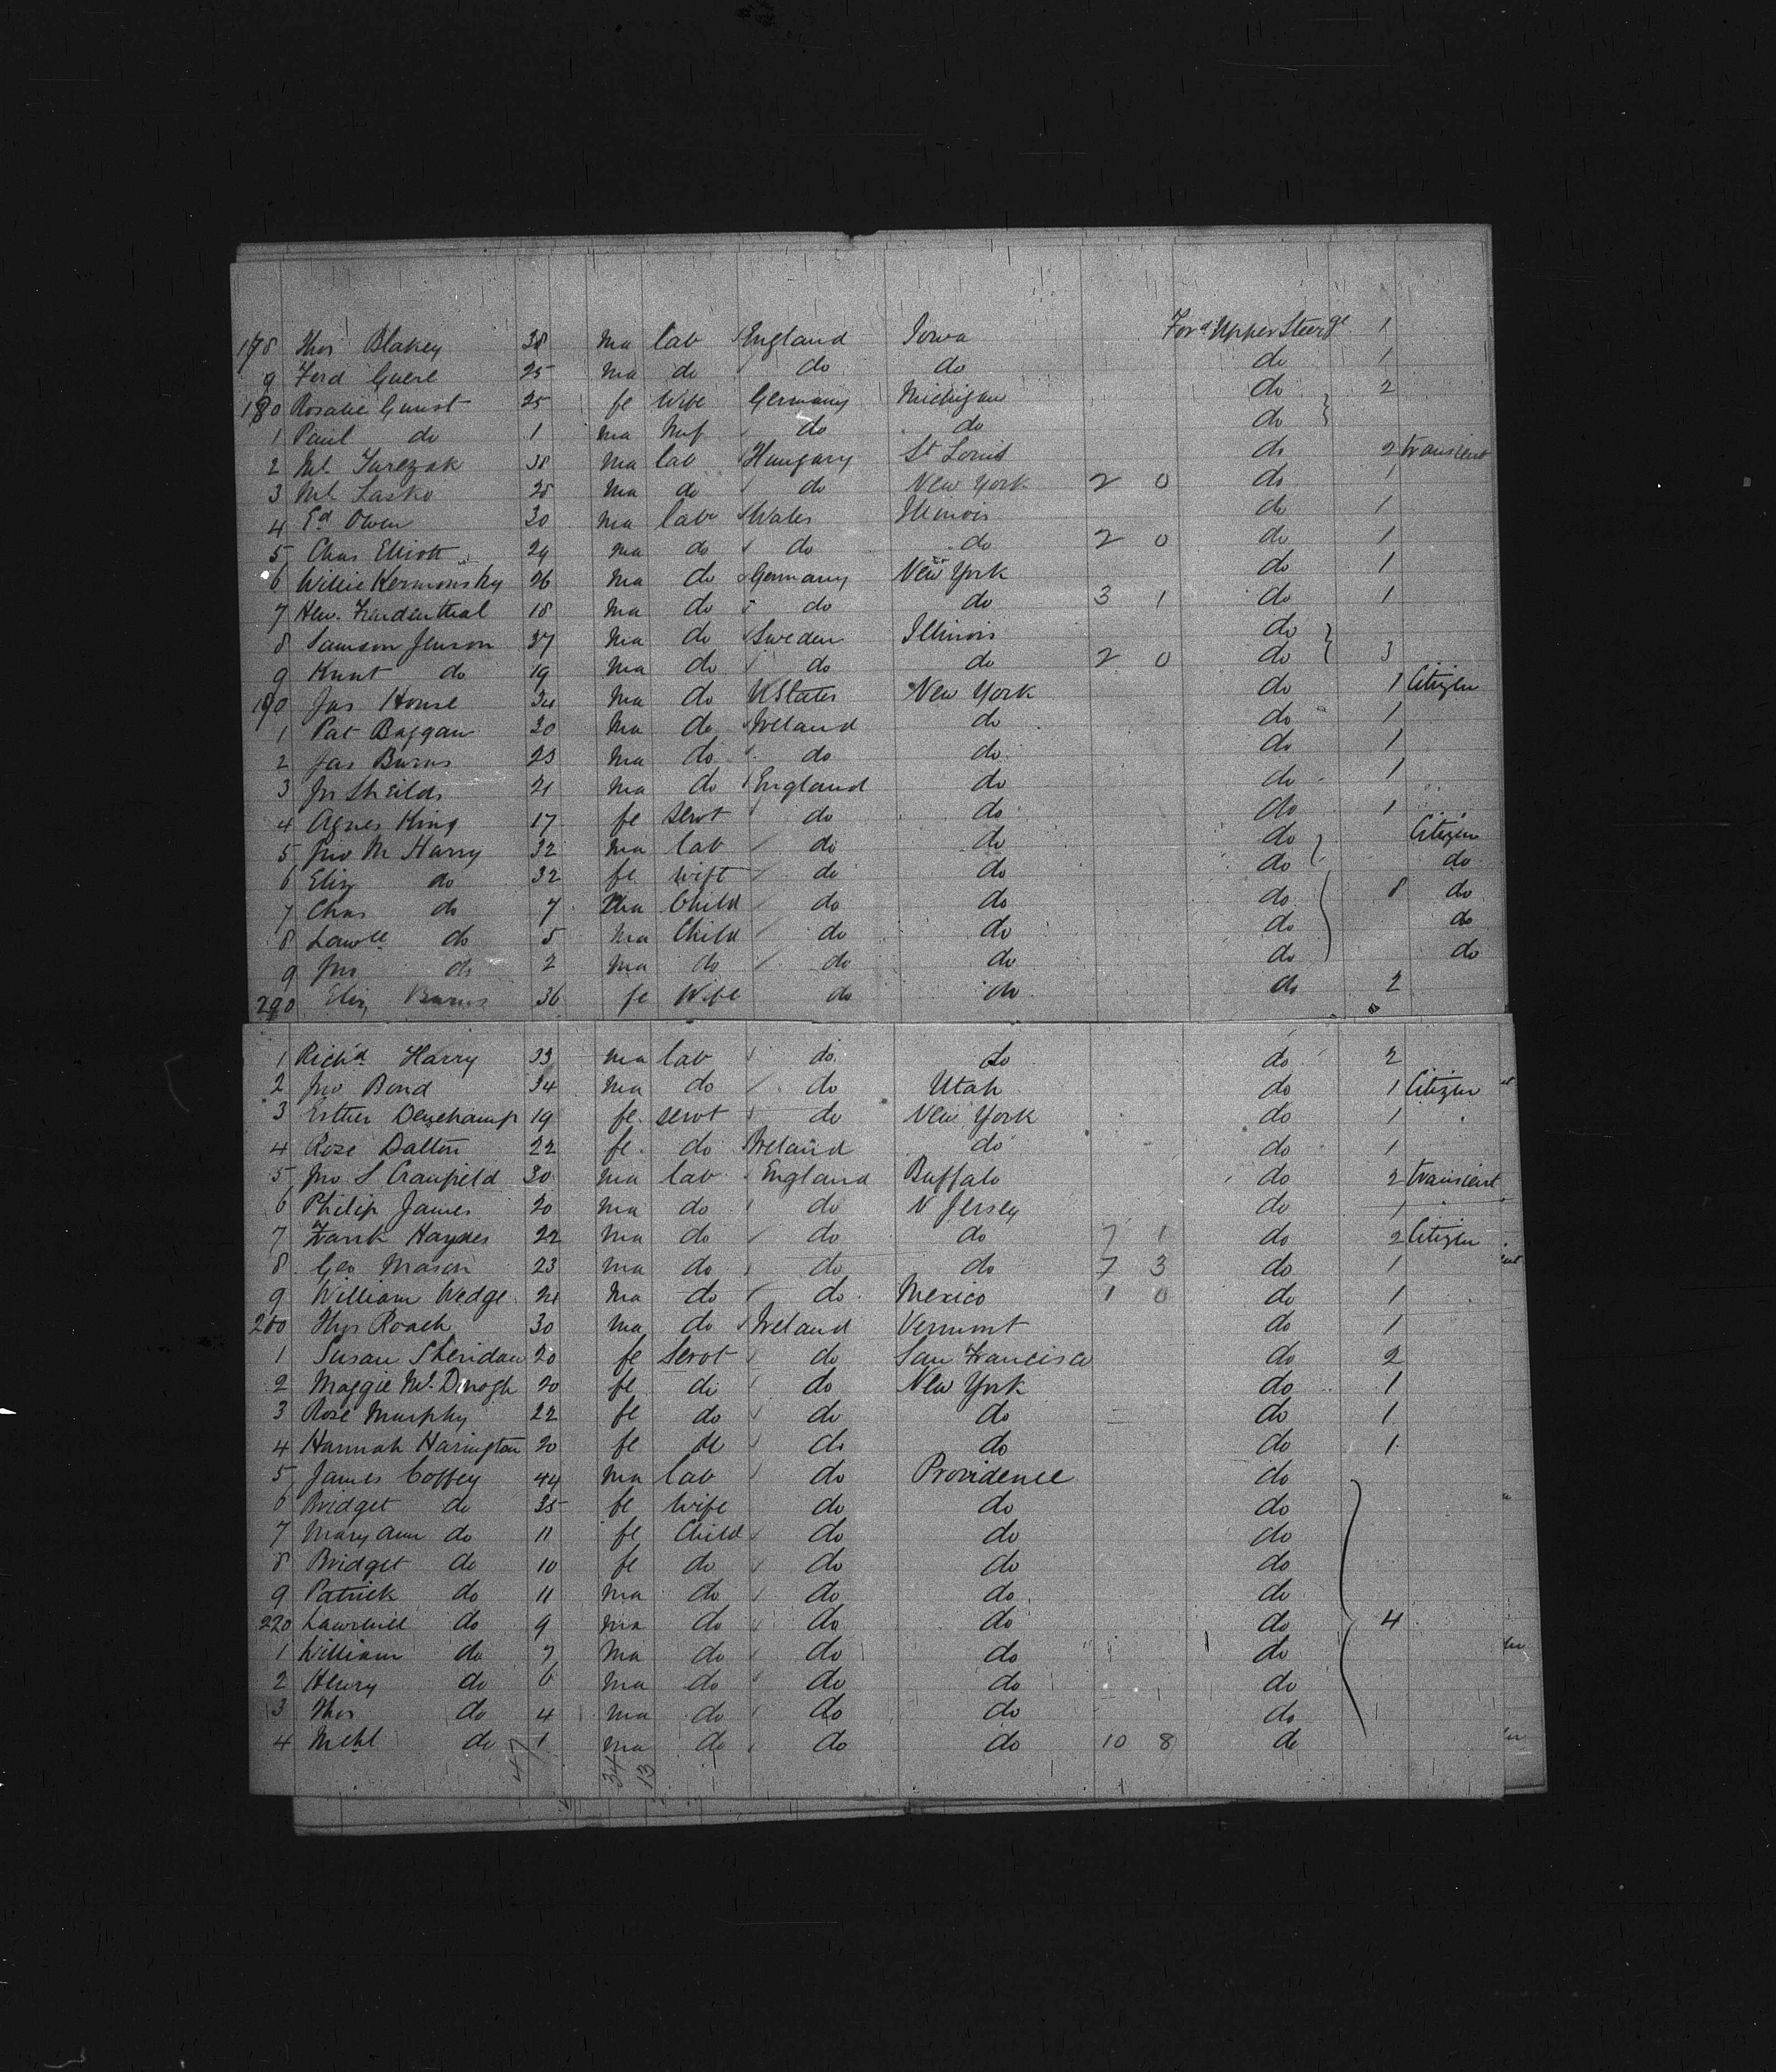 178 Thos Blakey 38 ma lab England Iowa Ford Upper Steerge 1
9 Ferd Guere 25 ma do do do do 1
180 Rosalie Gunst 25 fe Wife Germany Michigan do 2
1 Paul do 1 ma Inf do do do
2 Ml Turezak 38 ma lab Hungary St Louis do 2 transient
3 Ml Lasko 28 ma do do New York 2 0 do 1
4 Ed Owen 30 ma labr Wales Illinois do 1
5 Chas Elliott 29 ma do do do 2 0 do 1
6 Willie Kermonsky 26 ma do Germany New York do 1
7 Hen. Frudenthal 18 ma do do do 3 1 do 1
8 Samson Jenson 37 ma do Sweden Illinois do
9 Knut do 19 ma do do do 2 0 do 3
190 Jas House 34 ma do UStates New York do 1 Citizen
1 Pat Baggan 20 ma do Ireland do do 1
2 Jas Burns 23 ma do do do do 1
3 Jn Sheilds 21 ma do England do do 1
4 Agnes King 17 fe servt do do do 1
5 Jno M Harry 32 ma lab do do do Citizen
6 Eliz do 32 fe wife do do do do
7 Chas do 7 ma Child do do do 8 do
8 Lawce do 5 ma Child do do do do
9 Jno do 2 ma do do do do do
200 Eliz Burns 36 fe Wife do do do 2
1 Richd Harry 33 ma lab do do do 2
2 Jno Bond 34 ma do do Utah do 1 Citizen
3 Esther Denchamp 19 fe servt do New York do 1
4 Rose Dalton 22 fe do Ireland do do 1
5 Jno S Cranfield 30 ma lab England Buffalo do 2 transient
6 Philip James 20 ma do do N Jersey do 1
7 Frank Haynes 22 ma do do do 7 1 do 2 Citizen
8 Geo Mason 23 ma do do do 7 3 do 1
9 William Wedge 21 ma do do Mexico 1 0 do 1
200 Thos Roach 30 ma do Ireland Vermont do 1
1 Susan Sheridan 20 fe Servt do San Francisco do 2
2 Maggie Mc Donogh 20 fe do do New York do 1
3 Rose Murphy 22 fe do do do do 1
4 Hannah Harington 20 fe do do do do 1
5 James Coffey 44 ma lab do Providence do
6 Bridget do 35 fe wife do do do
7 Mary Ann do 11 fe Child do do do
8 Bridget do 10 fe do do do do
9 Patrick do 11 ma do do do do
220 Lawrence do 9 ma do do do do 4
1 William do 7 ma do do do do
2 Henry do 6 ma do do do do
3 Thos do 4 ma do do do do
4 Mchl do 1 ma do do do 10 8 do
47 34 13